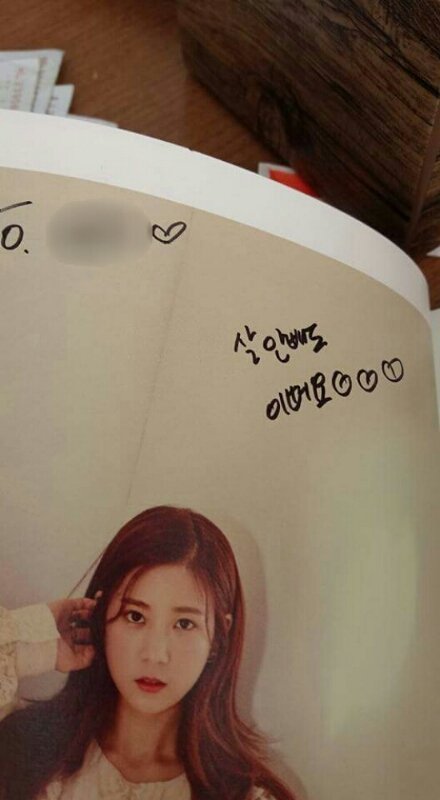 O. ♡
살 안빼도
이뻐요♡♡♡